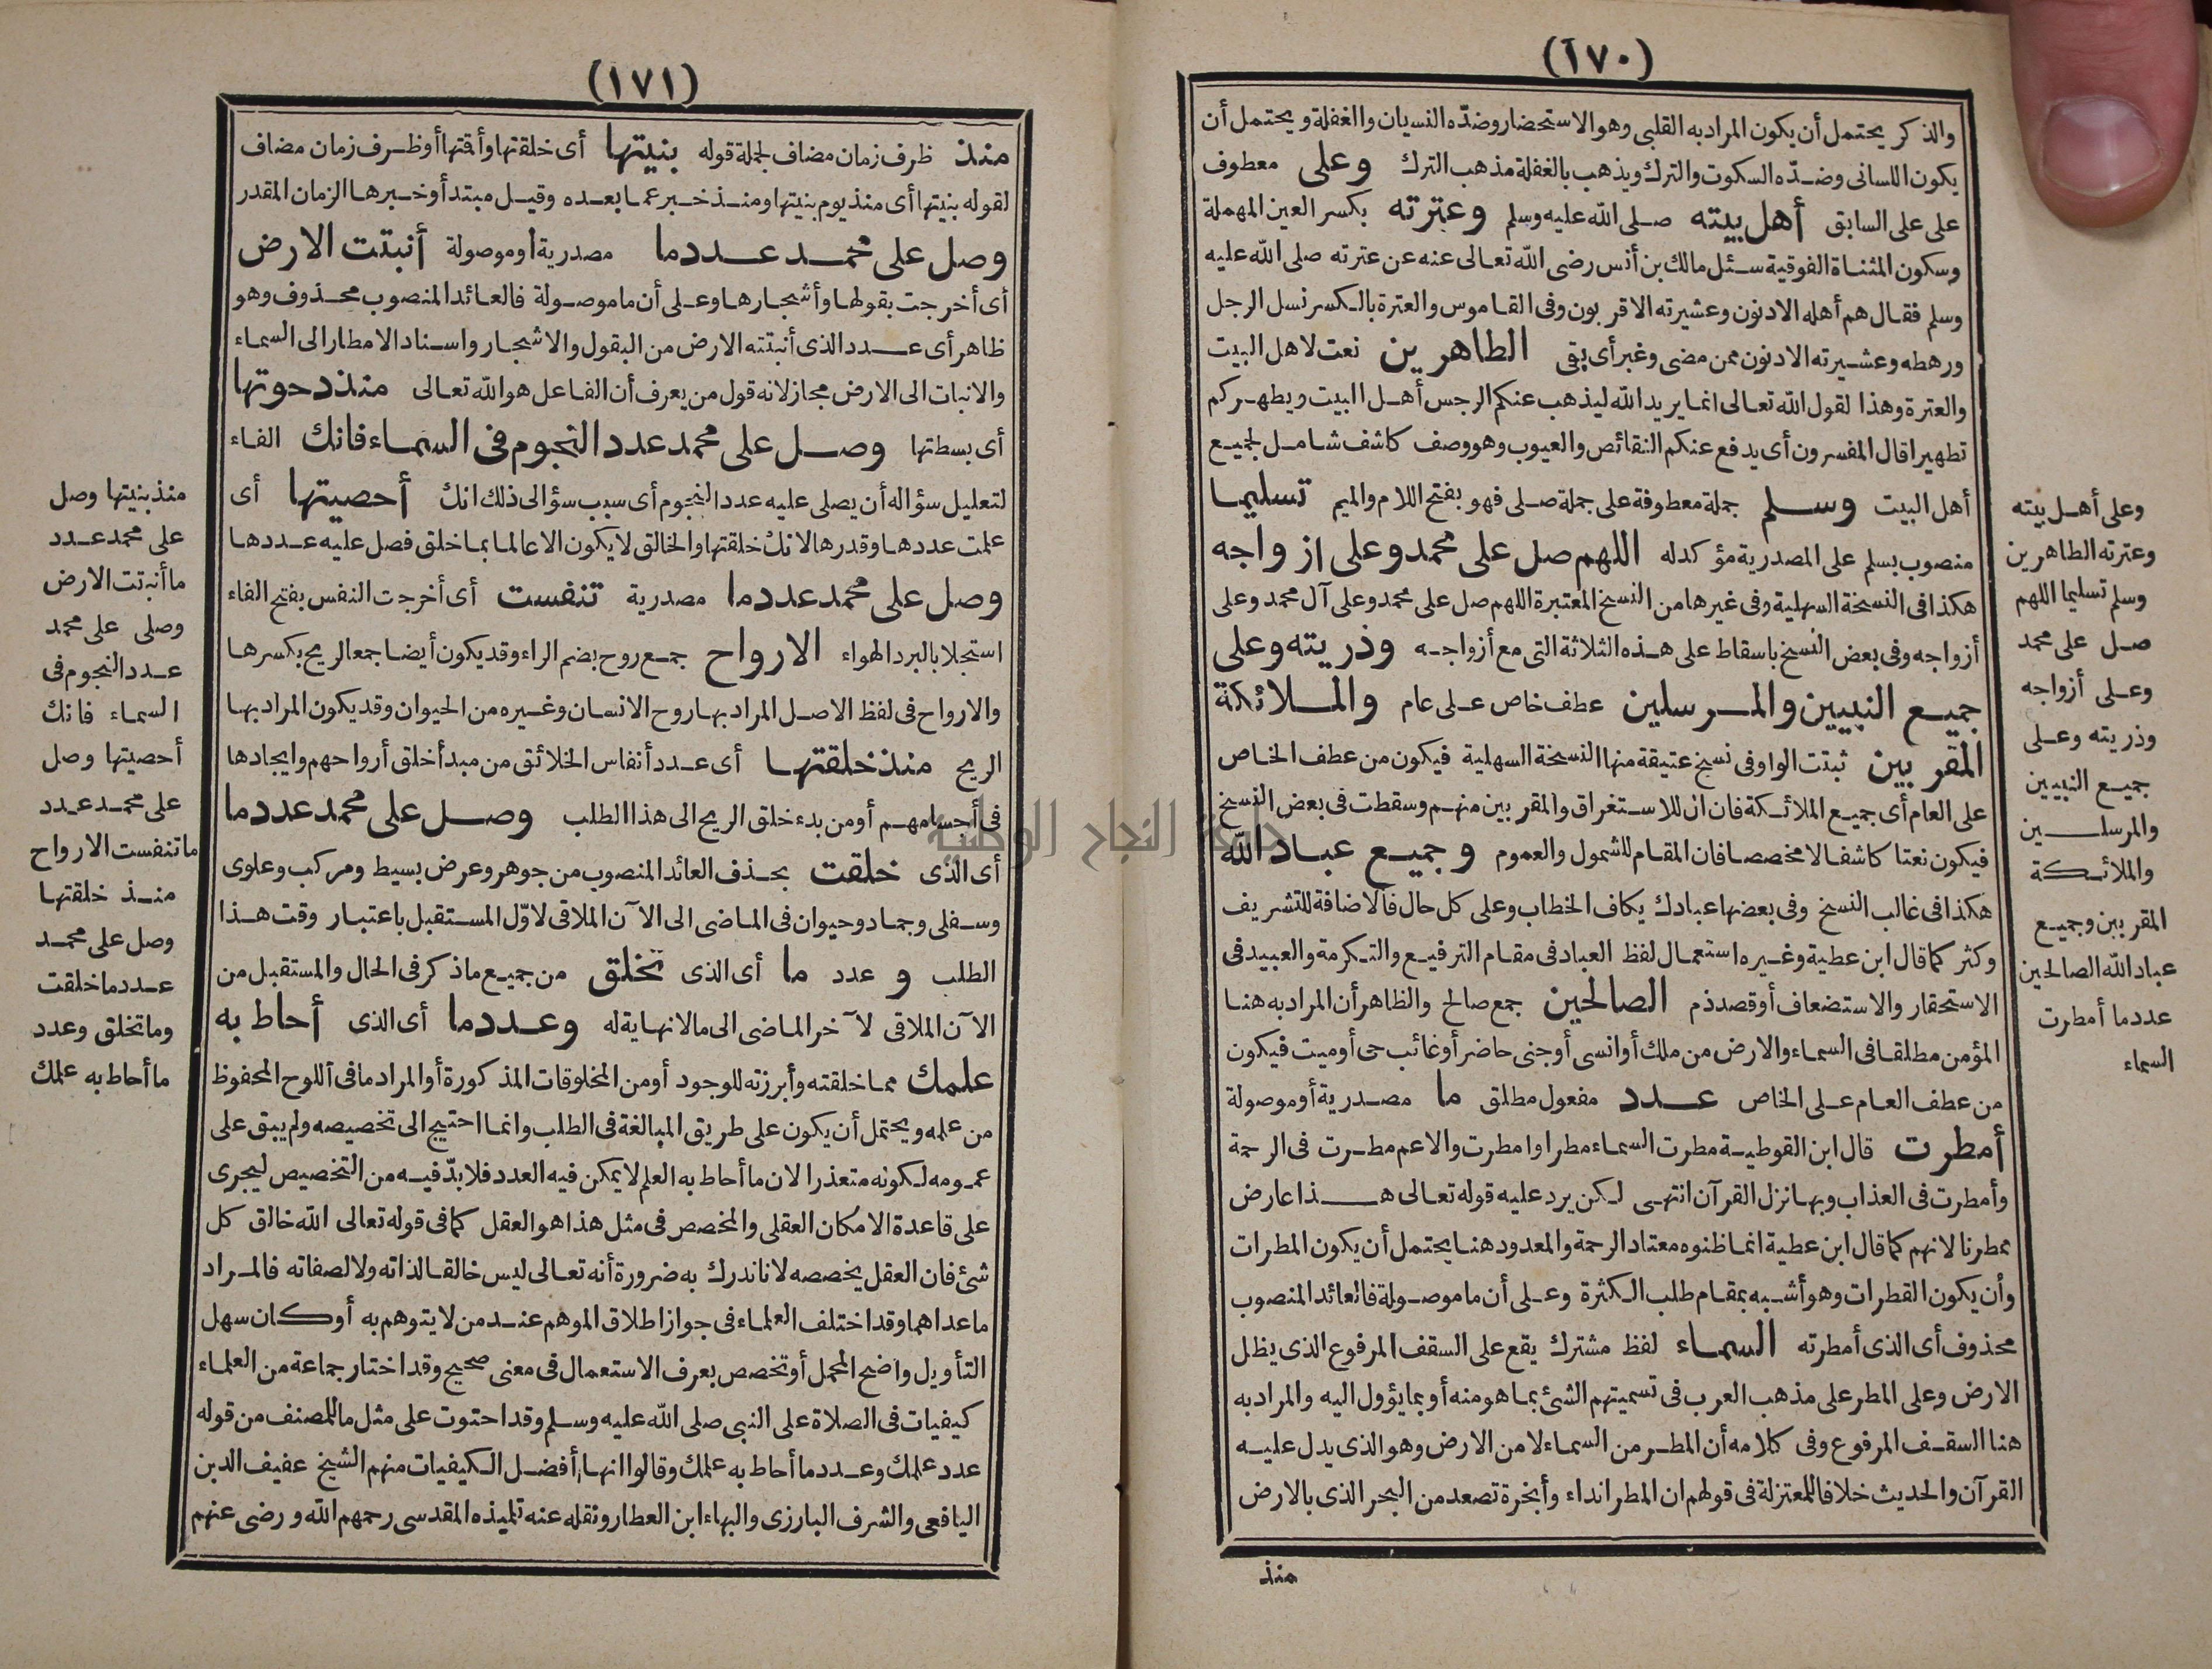 (١٧٠)
والذكر يحتمل أن يكون المراد به القلبى وهو الاستحضار وضدّه النسيان والغفلة ويحتمل أن
يكون اللسانى وضدّه السكوت والترك ويذهب بالغفلة مذهب الترك وعلى معطوف
على على السابق أهل بيته صلى الله عليه وسلم وعترته بكسر العين المهملة
وسكون المثناة الفوقية سئل مالك بن أنس رضى الله تعالى عنه عن عترته صلى الله عليه
وسلم فقال هم أهله الادنون وعشيرته الاقربون وفى القاموس والعترة بالكسر نسل الرجل
ورهطه وعشيرته الادنون ممن مضى وغبر أى بقى الطاهرين نعت لاهل البيت
والعترة وهذا لقول الله تعالى انما يريد الله ليذهب عنكم الرجس أهل البيت ويطهركم
تطهيرا قال المفسرون أى يدفع عنكم النقائص والعيوب وهو وصف كاشف شامل لجميع
أهل البيت وسلم جملة معطوفة على جملة صلى فهو بفتح اللام والميم تسليما
منصوب بسلم على المصدرية مؤكد له اللهم صل على محمد وعلى ازواجه
هكذا فى النسخة السهلية وفى غيرها من النسخ المعتبرة اللهم صل على محمد وعلى آل محمد وعلى
أزواجه وفى بعض النسخ باسقاط على هذه الثلاثة التى مع أزواجه وذريته وعلى
جميع النبيين والمرسلين عطف خاص على عام والملائكة
المقربين ثبتت الواو فى نسخ عتيقة منها النسخة السهلية فيكون من عطف الخاص
على العام أى جميع الملائكة فان ال للاستغراق والمقربين منهم وسقطت فى بعض النسخ
فيكون نعتا كاشفا لا مخصصا فان المقام للشمول والعموم وجميع عباد الله
هكذا فى غالب النسخ وفى بعضها عبادك بكاف الخطاب وعلى كل حال فالاضافة للتشريف
وكثر كما قال ابن عطية وغيره استعمال لفظ العباد فى مقام الترفيع والتكرمة والعبيد فى
الاستحقار والاستضعاف أو قصد ذم الصالحين جمع صالح والظاهر أن المراد به هنا
المؤمن مطلقا فى السماء والارض من ملك أو انسى أو جنى حاضر أو غائب حى أو ميت فيكون
من عطف العام على الخاص عدد مفعول مطلق ما مصدرية أو موصولة
أمطرت قال ابن القوطية مطرت السماء مطرا وامطرت والاعم مطرت فى الرحمة
وأمطرت فى العذاب وبها نزل القرآن انتهى لكن يرد عليه قوله تعالى هذا عارض
ممطرنا لانهم كما قال ابن عطية انما ظنوه معتاد الرحمة والمعدود هنا يحتمل أن يكون المطرات
وأن يكون القطرات وهو أشبه بمقام طلب الكثرة وعلى أن ما موصولة فالعائد المنصوب
محذوف أى الذى أمطرته السماء لفظ مشترك يقع على السقف المرفوع الذى يظل
الارض وعلى المطر على مذهب العرب فى تسميتهم الشئ بما هو منه أو بما يؤول اليه والمراد به
هنا السقف المرفوع وفى كلامه أن المطر من السماء لا من الارض وهو الذى يدل عليه
القرآن والحديث خلافا للمعتزلة فى قولهم ان المطر انداء وأبخرة تصعد من البحر الذى بالارض
منذ
وعلى أهل بيته
وعترته الطاهرين
وسلم تسليما اللهم
صل على محمد
وعلى أزواجه
وذريته وعلى
جميع النبيين
والمرسلين
والملائكة
المقربين وجميع
عباد الله الصالحين
عدد ما أمطرت
السماء
(١٧١)
منذ ظرف زمان مضاف لجملة قوله بنيتها أى خلقتها وأقمتها أو ظرف زمان مضاف
لقوله بنيتها أى منذ يوم بنيتها ومنذ خبر عما بعده وقيل مبتدأ وخبرها الزمان المقدر
وصل على محمد عدد ما مصدرية أو موصولة أنبتت الارض
أى أخرجت بقولها وأشجارها وعلى أن ما موصولة فالعائد المنصوب محذوف وهو
ظاهر أى عدد الذى أنبتته الارض من البقول والاشجار واسناد الامطار الى السماء
والانبات الى الارض مجاز لانه قول من يعرف أن الفاعل هو الله تعالى منذ دحوتها
أى بسطتها وصل على محمد عدد النجوم فى السماء فانك الفاء
لتعليل سؤاله أن يصلى عليه عدد النجوم أى سبب سؤالى ذلك انك أحصيتها أى
علمت عددها وقدرها لانك خلقتها والخالق لا يكون الا عالما بما خلق فصل عليه عددها
وصل على محمد عدد ما مصدرية تنفست أى أخرجت النفس بفتح الفاء
استجلابا لبرد الهواء الارواح جمع روح بضم الراء وقد يكون أيضا جمعا لريح بكسرها
والارواح فى لفظ الاصل المراد بها روح الانسان وغيره من الحيوان وقد يكون المراد بها
الريح منذ خلقتها أى عدد أنفاس الخلائق من مبدأ خلق أرواحهم وايجادها
فى أجسامهم أو من بدء خلق الريح الى هذا الطلب وصل على محمد عدد ما
أى الذى خلقت بحذف العائد المنصوب من جوهر وعرض بسيط ومركب وعلوى
وسفلى وجماد وحيوان فى الماضى الى الآن الملاقى لاوّل المستقبل باعتبار وقت هذا
الطلب و عدد ما أى الذى تخلق من جميع ما ذكر فى الحال والمستقبل من
الآن الملاقى لآخر الماضى الى مالا نهاية له وعدد ما أى الذى أحاط به
علمك مما خلقته وأبرزته للوجود أو من المخلوقات المذكورة أو المراد ما فى اللوح المحفوظ
من علمه ويحتمل أن يكون على طريق المبالغة فى الطلب وانما احتيج الى تخصيصه ولم يبق على
عمومه لكونه متعذرا لان ما أحاط به العلم لا يمكن فيه العدد فلا بدّ فيه من التخصيص ليجرى
على قاعدة الامكان العقلى والمخصص فى مثل هذا هو العقل كما فى قوله تعالى الله خالق كل
شئ فان العقل يخصصه لاناندرك به ضرورة أنه تعالى ليس خالقا لذاته ولا لصفاته فالمراد
ما عداهما وقد اختلف العلماء فى جواز اطلاق الموهم عند من لا يتوهم به أو كان سهل
التأويل واضح المحمل أو تخصص بعرف الاستعمال فى معنى صحيح وقد اختار جماعة من العلماء
كيفيات فى الصلاة على النبى صلى الله عليه وسلم وقد احتوت على مثل ما للمصنف من قوله
عدد علمك وعدد ما أحاط به علمك وقالوا انها أفضل الكيفيات منهم الشيخ عفيف الدين
اليافعى والشرف البارزى والبهاء ابن العطار ونقله عنه تلميذه المقدسى رحمهم الله ورضى عنهم
منذ بنيتها وصل
على محمد عدد
ما أنبتت الارض
وصلى على محمد
عدد النجوم فى
السماء فانك
أحصيتها وصل
على محمد عدد
ما تنفست الارواح
منذ خلقتها
وصل على محمد
عدد ما خلقت
وما تخلق وعدد
ما أحاط به علمك
جامعة النجاح الوطنية